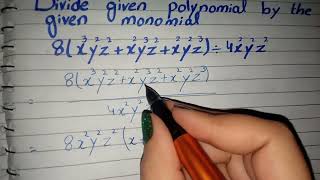 Divide given polynomial by the
given monomial
8(x³y²z²+x²y³z²+x²y²z³)÷4x²y²z²
8(x³y²z²+x²y³z²+x²y²z³)
4x²y²
= 8x²y²z²(x